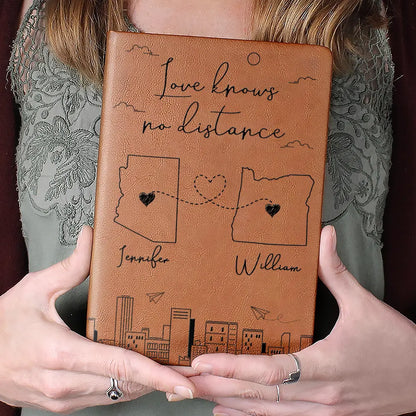 Love knows
no distance
Jennifer
William